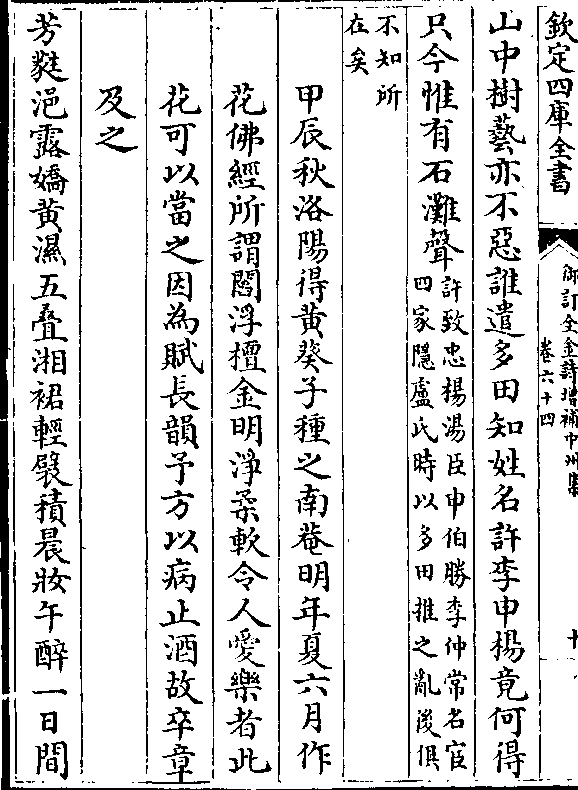 欽定四庫全書
御訂全金詩増補中州集
卷六十四
山中樹藝亦不惡誰遣多田知姓名許李申楊竟何得
只今惟有石灘聲許致忠楊湯臣申伯勝李仲常名宦
四家隱盧氏時以多田推之亂後俱
不知所
在矣
甲辰秋洛陽得黄葵子種之南菴明年夏六月作
花佛經所謂閻浮檀金明淨柔軟令人愛樂者此
花可以當之因為賦長韻予方以病止酒故卒章
及之
芳蕤浥露嬌黄濕五叠湘裙輕襞積晨妝午醉一日間